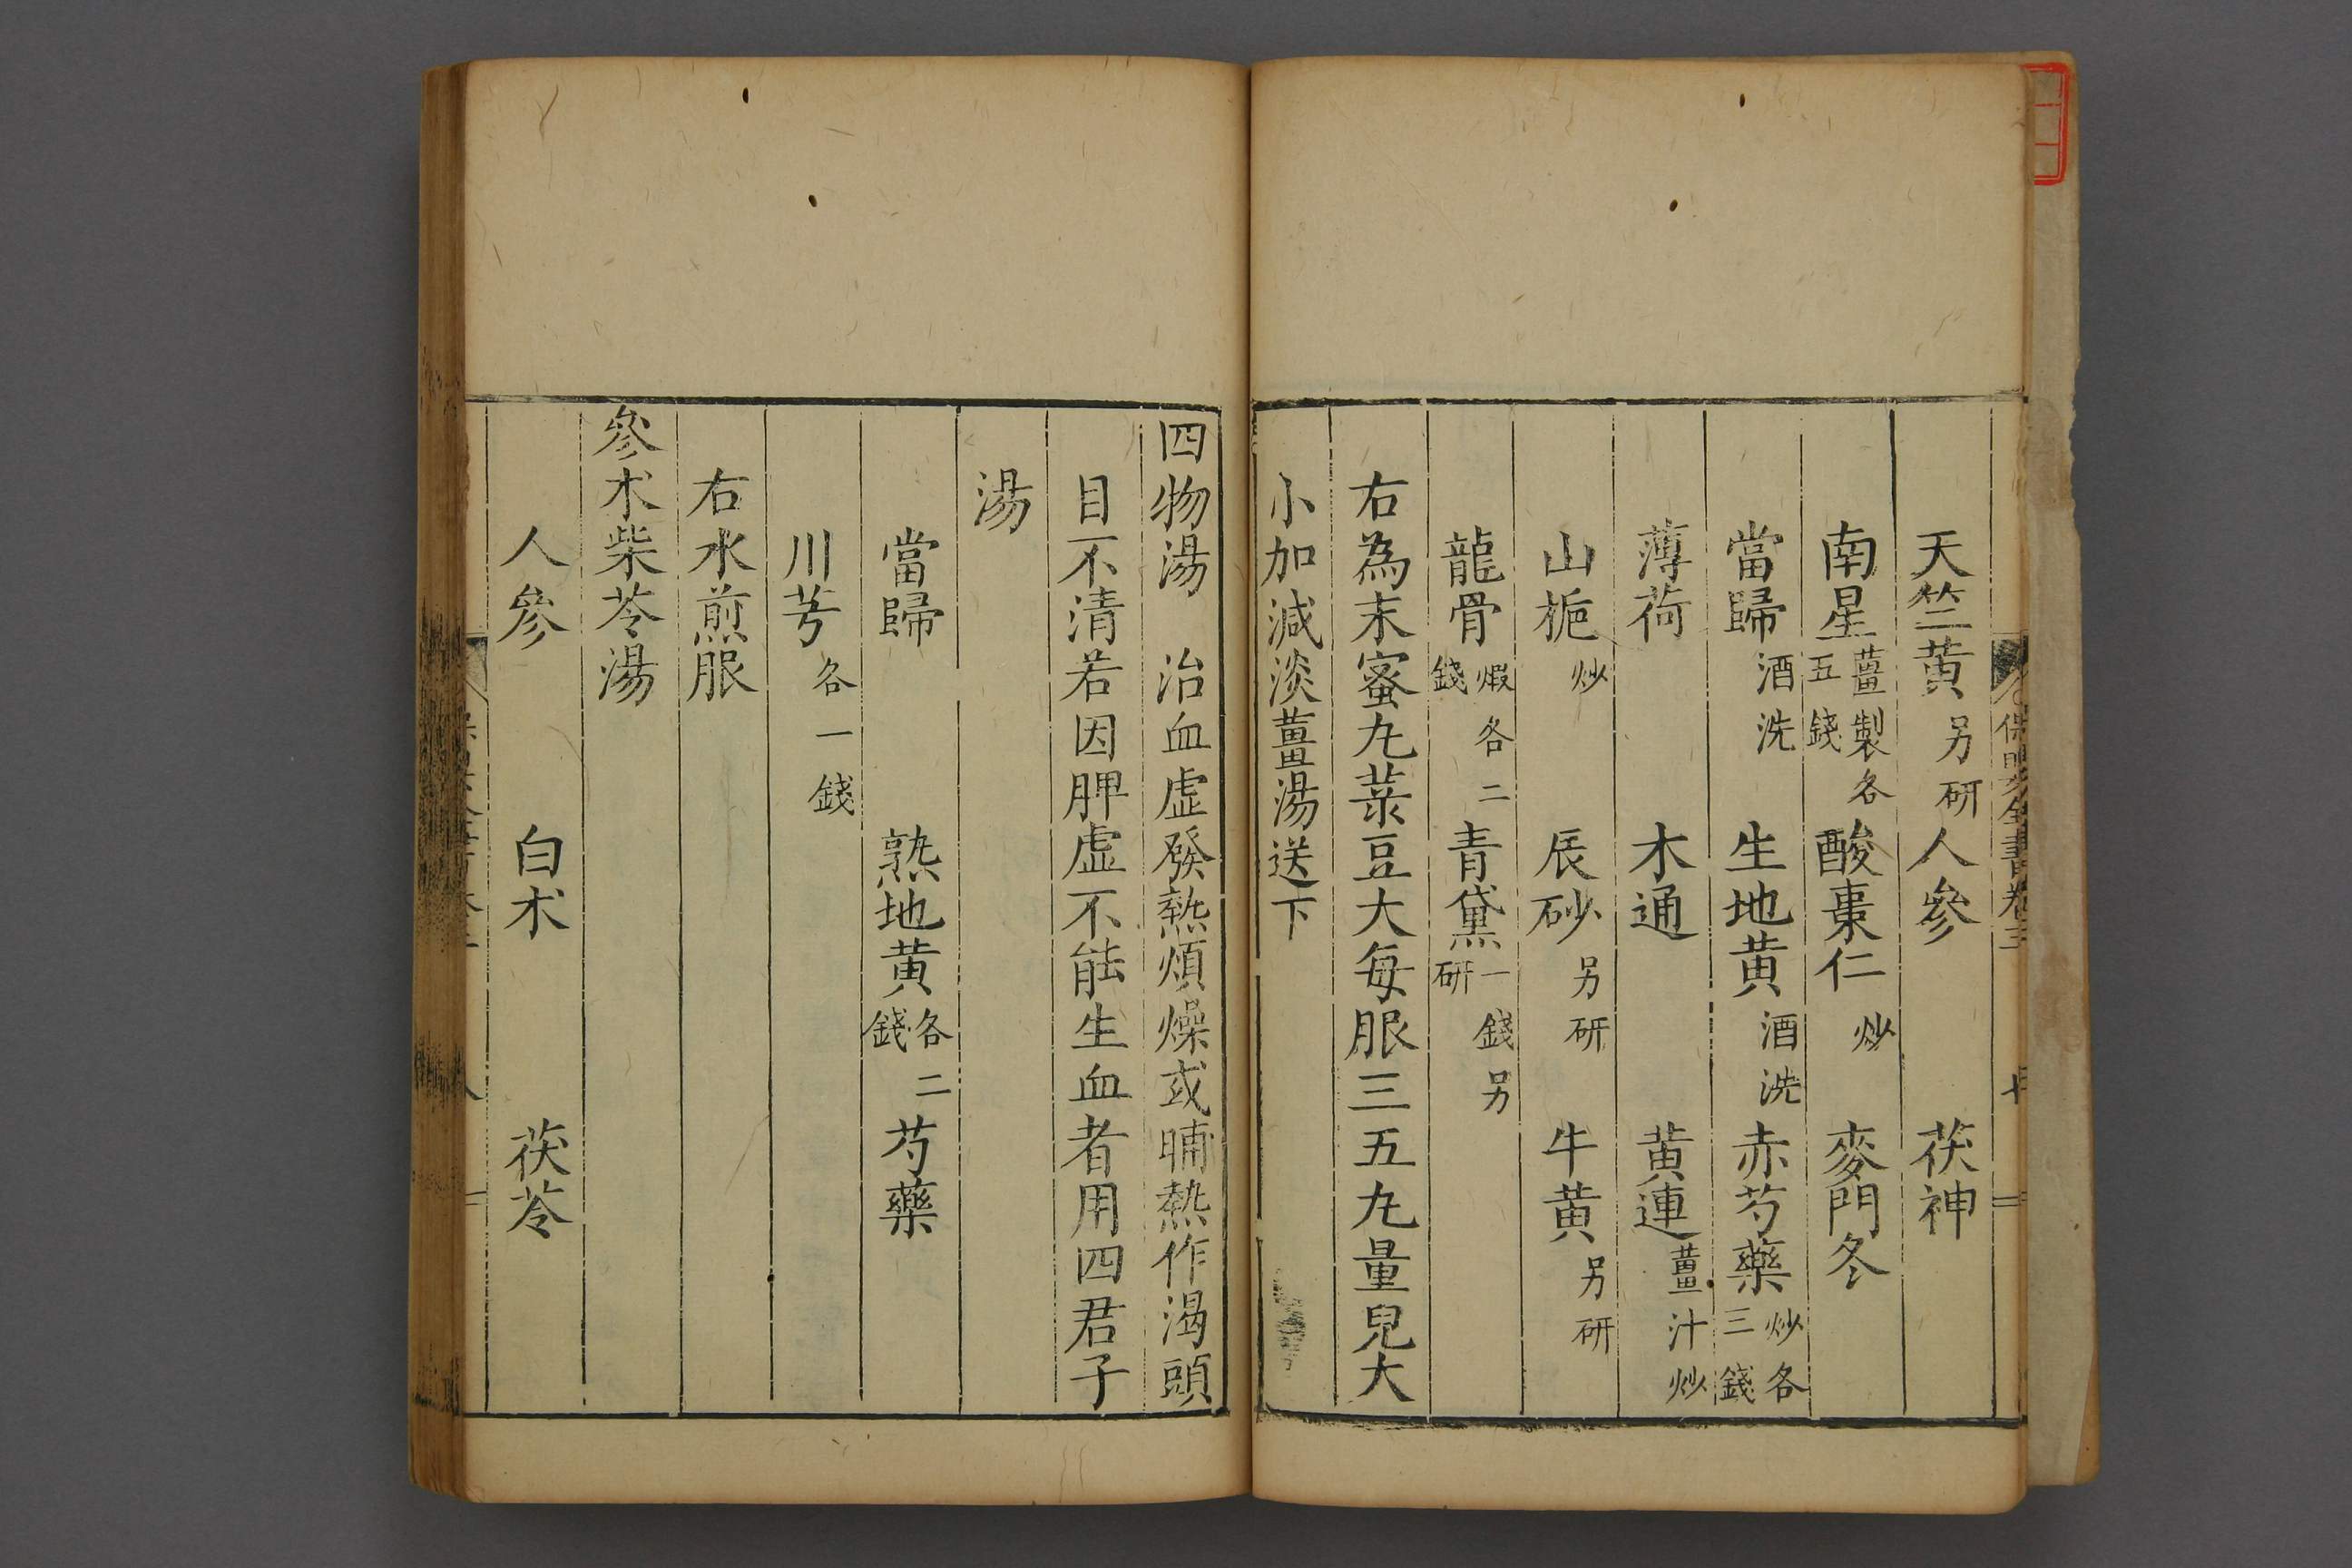 天竺黃另研人參 茯神
南星薑製各五錢酸棗仁炒 麥門冬
當歸酒洗 生地黃酒洗赤芍藥炒各三錢
薄荷 木通 黃連薑汁炒
山梔炒 辰砂另研 牛黃另研
龍骨煅各二錢青黛一錢另研
右為末蜜丸菉豆大每服三五丸量兒大
小加減淡薑湯送下
四物湯 治血虛發熱煩燥或晡熱作渴頭
目不清若因脾虛不能生血者用四君子
湯
當歸 熟地黃各二錢芍藥
川芎各一錢
右水煎服
參朮柴苓湯
人參 白朮 茯苓